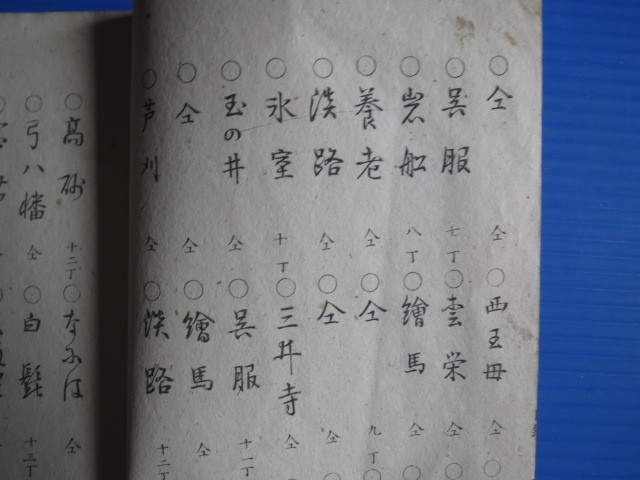 ○仝 仝 ○西王母 仝 ○
○呉服 七丁 ○雲栄 仝 ○
○岩船 八丁 ○繪馬 仝
○養老 仝 ○仝 九丁 ○
○淡路 仝 ○仝 仝
○氷室 十丁 ○三井寺 仝
○玉の井 仝 ○呉服 十一丁
○仝 仝 ○繪馬 仝
○芦刈 仝 ○淡路 十二丁
○高砂 十二丁 ○なには 仝
○弓八幡 仝 ○白髭 十三丁